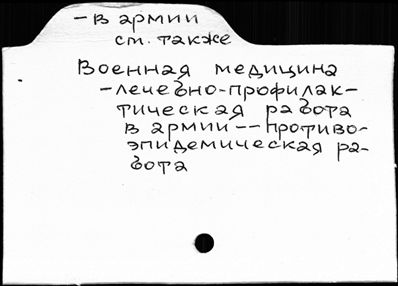 - в армии
см. также
Военная медицина
- лечебно-профилак-
тическая работа
в армии -- противо-
эпидемическая ра-
бота